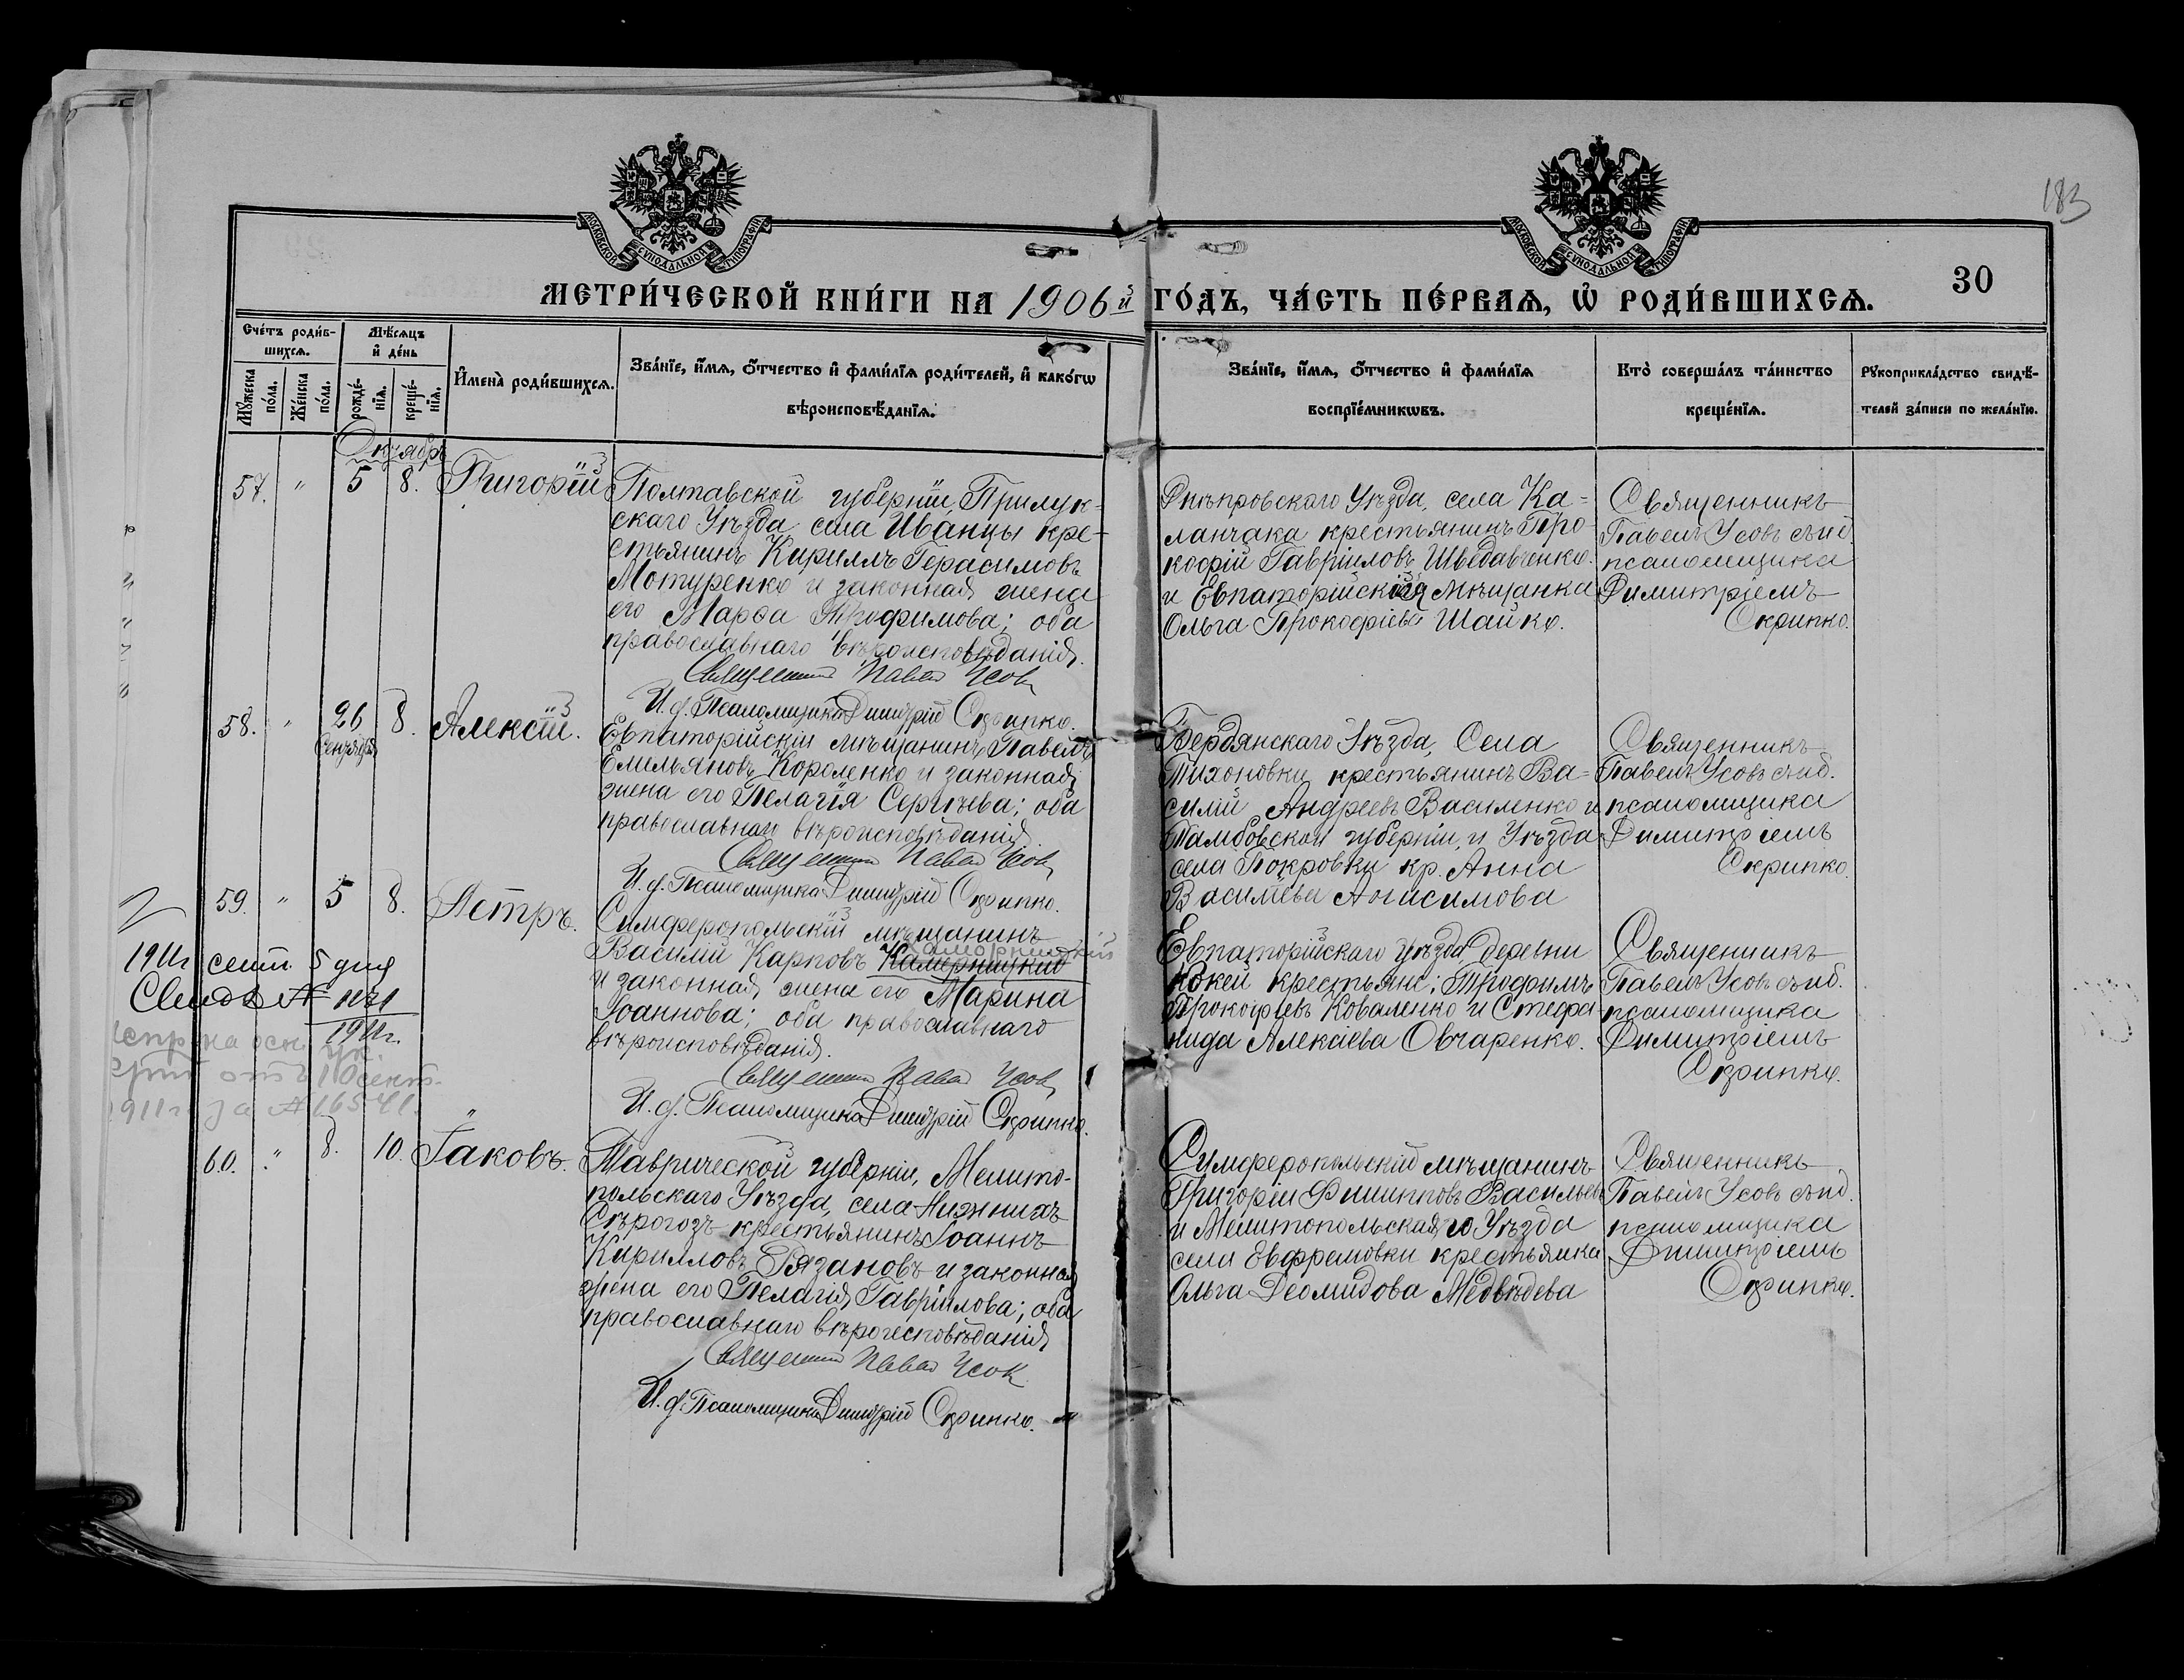 183
МОСКОВСКОЙ СѴНОДАЛЬНОЙ ТИПОГРАФІИ
МОСКОВСКОЙ СѴНОДАЛЬНОЙ ТИПОГРАФІИ
МЕТРИ́ЧЕСКОЙ КНИ́ГИ НА 1906й ГО́ДЪ, ЧА́СТЬ ПЕ́РВАѦ, Ѡ҆ РОДИ́ВШИХСѦ.
30
Сче́тъ роди́в-
шихсѧ.
Мѣ́сѧцъ
и҆ де́нь
Мꙋ́жеска
по́ла.
Же́нска
по́ла.
рожде́-
нїѧ.
креще́-
нїѧ.
И҆мена̀ роди́вшихсѧ.
Зва́нїе, и҆́мѧ, ѻ҆́тчество и҆ фами́лїѧ роди́телей, и҆ како́гѡ
вѣроисповѣ́данїѧ.
Зва́нїе, и҆́мѧ, ѻ҆́тчество и҆ фами́лїѧ
воспрїе́мникѡвъ.
Кто̀ соверша́лъ та́инство
креще́нїѧ.
Рꙋкоприкла́дство свидѣ́-
телей за́писи по жела́нїю.
Октябрь
57. " 5 8. Григорій
Полтавской губерніи, Прилук-
скаго Уѣзда села Иванцы кре-
стьянинъ Кириллъ Герасимовъ
Мотуренко и законная жена
его Марѳа Трофимова; оба
православнаго вѣроисповѣданія.
Священникъ Павелъ Усовъ
И. д. Псаломщика Димитрій Скрипко.
Днѣпровскаго Уѣзда, села Ка-
ланчака крестьянинъ Про-
кофій Гавріиловъ Шведавченко
и Евпаторійская Мѣщанка
Ольга Прокофіева Шайко.
Священникъ
Павелъ Усовъ съ и.д.
псаломщика
Димитріемъ
Скрипко.
58. " 26 8. Алексій.
Сентября
Евпаторійскій мѣщанинъ Павелъ
Емильяновъ Короленко и законная
жена его Пелагія Сергіева; оба
православнаго вѣроисповѣданія
Священникъ Павелъ Усовъ
И. д. Псаломщика Димитрій Скрипко.
Бердянскаго Уѣзда, Села
Тихоновки крестьянинъ Ва-
силій Андреевъ Василенко и
Тамбовской губерніи, и Уѣзда
села Покровки кр. Анна
Васильева Анисимова
Священникъ
Павелъ Усовъ съ и.д.
псаломщика
Димитріемъ
Скрипко.
59. " 5 8. Петръ.
Симферопольскій мѣщанинъ
Василій Карповъ Камерницкій
и законная жена его Марина
Іоаннова; оба православнаго
вѣроисповѣданія.
Священникъ Павелъ Усовъ
И. д. Псаломщика Димитрій Скрипко.
1911г сент. 5 дня
1911г.
отъ 10 сент.
1911г. за № 16541.
Евпаторійскаго уѣзда деревни
крестьяне: Трофимъ
Прокофіевъ Коваленко и Стефа-
нида Алексіева Овчаренко.
Священникъ
Павелъ Усовъ съ и.д.
псаломщика
Димитріемъ
Скрипко.
60. " 8. 10. Іаковъ.
Таврической губерніи, Мелито-
польскаго Уѣзда, села Нижнихъ
Сѣрогозъ крестьянинъ Іоаннъ
Кирилловъ Рязановъ и законная
жена его Пелагія Гавріилова; оба
православнаго вѣроисповѣданія
Священникъ Павелъ Усовъ
И. д. Псаломщика Димитрій Скрипко.
Симферопольскій мѣщанинъ
Григорій Филипповъ Васильевъ
и Мелитопольскаго Уѣзда
села Ефремовки крестьянка
Ольга Деомидова Медвѣдева
Священникъ
Павелъ Усовъ съ и.д.
псаломщика
Димитріемъ
Скрипко.